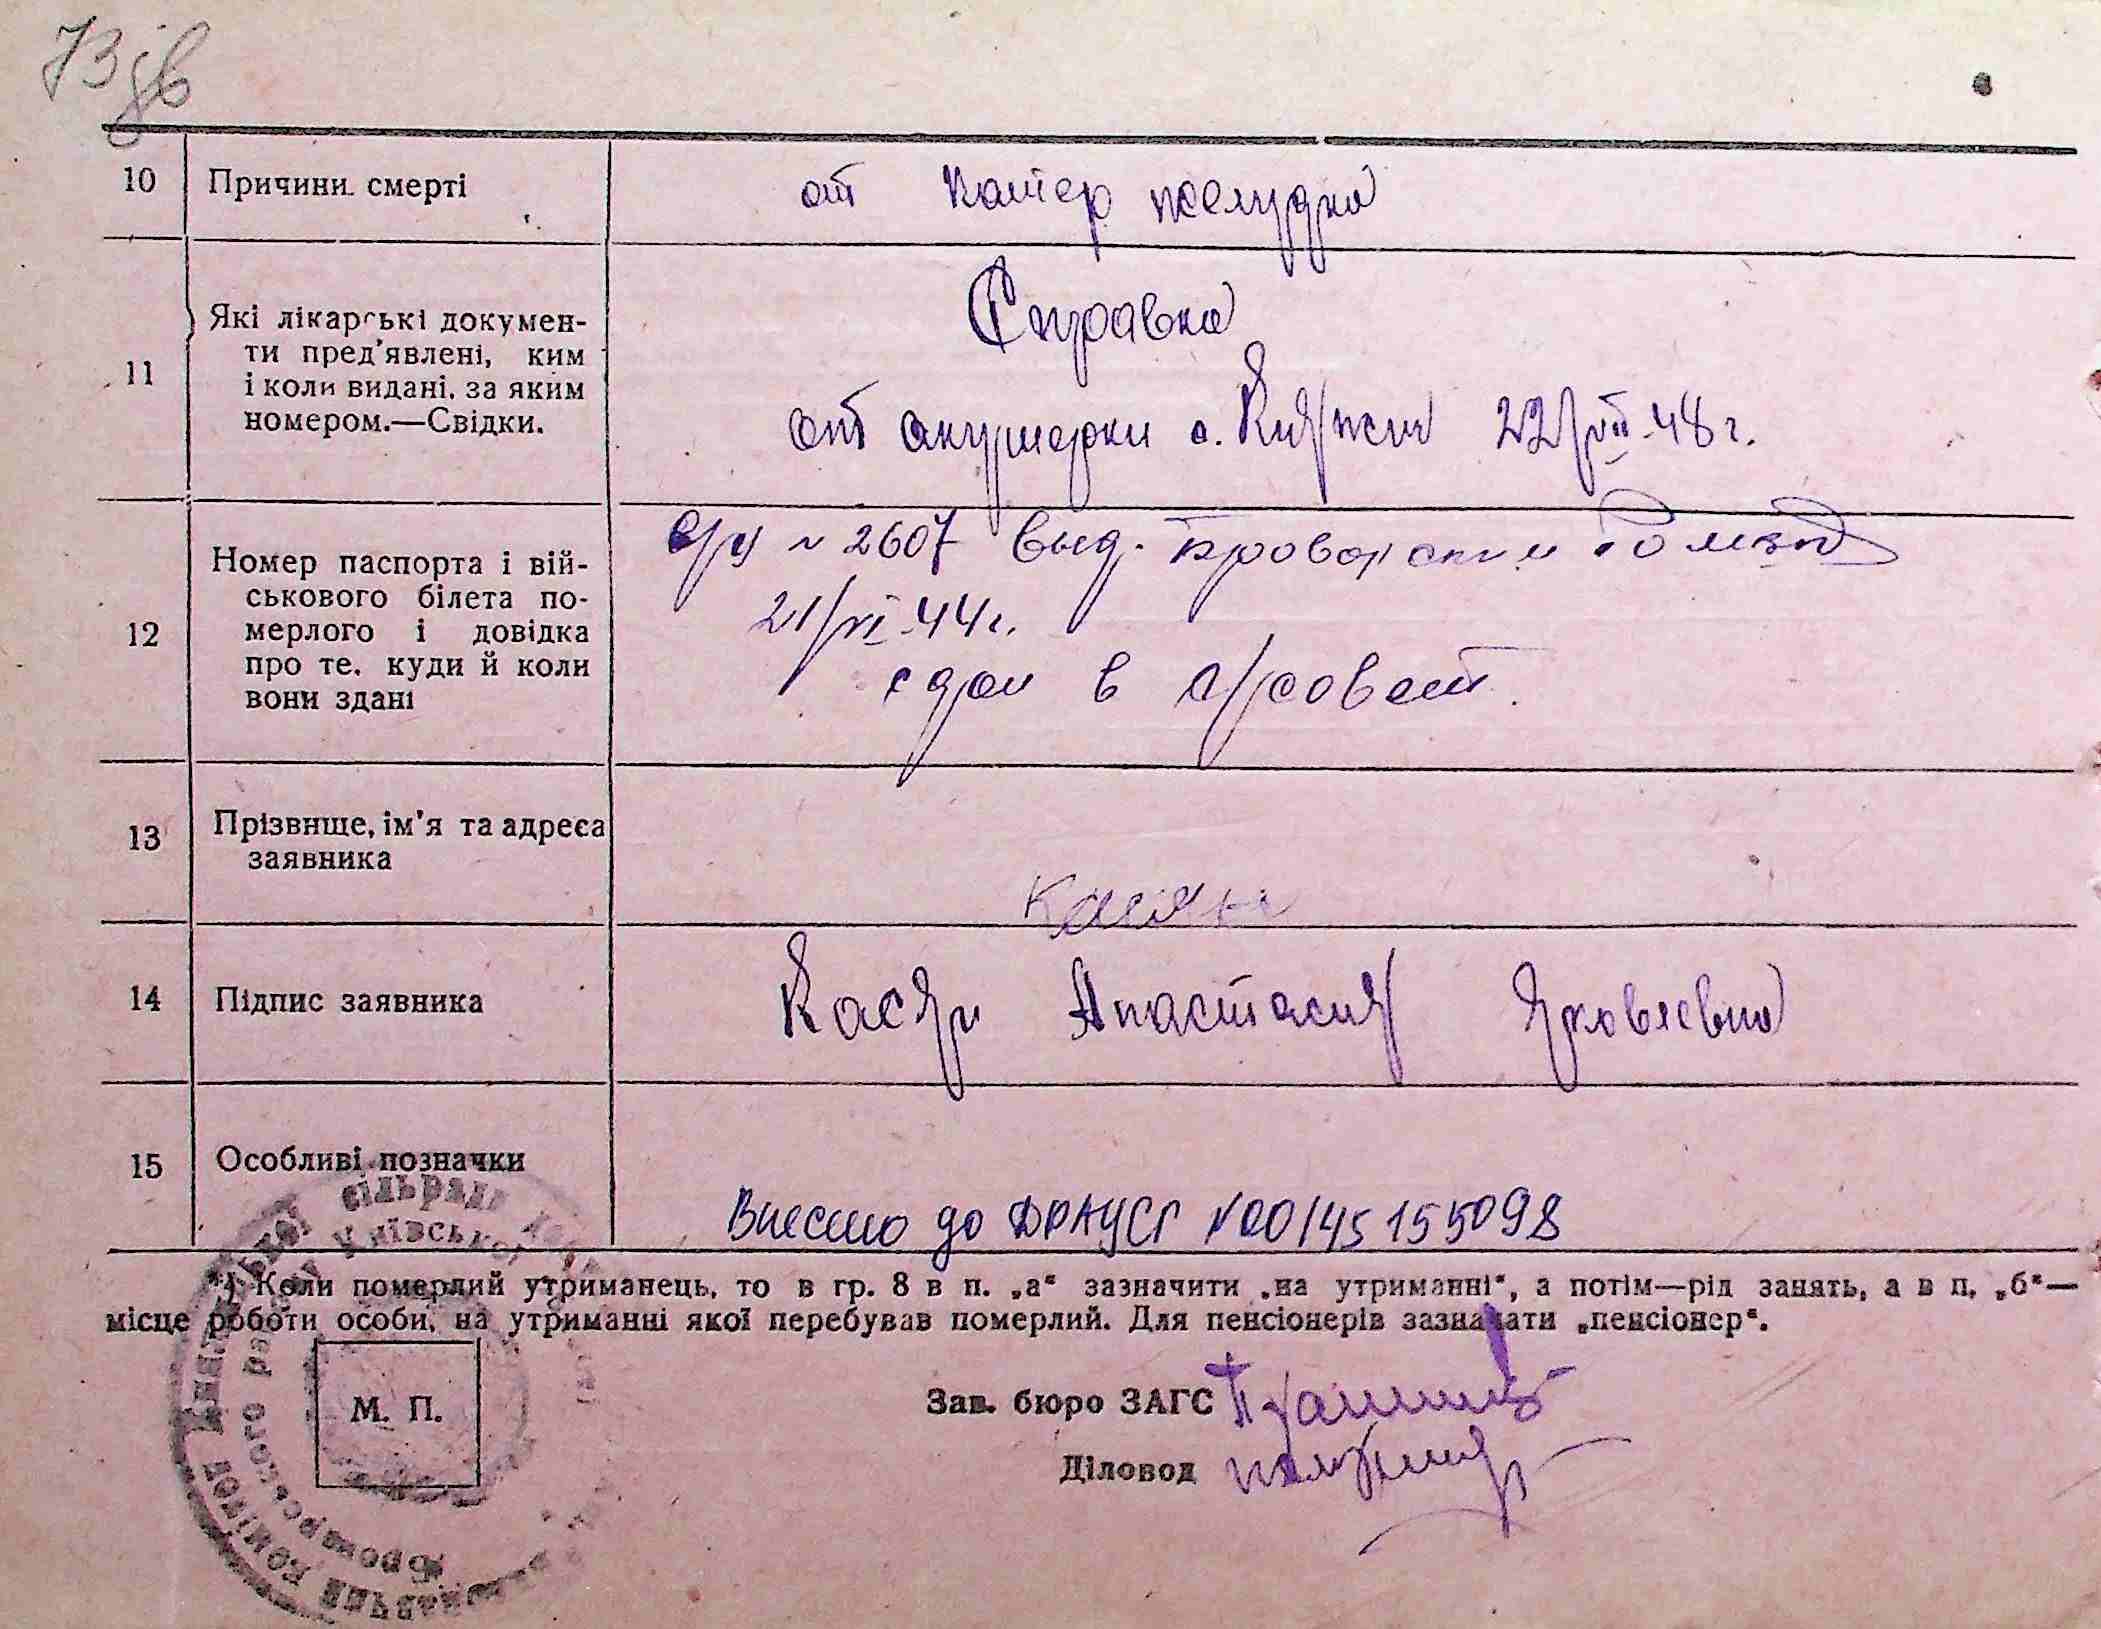 73 зв
10 Причини смерті
от катар желудка
11 Які лікарські докумен-
ти пред'явлені, ким
і коли видані, за яким
номером.—Свідки.
Справка
от акушерки с. Княжичи 22/VII-48 г.
12 Номер паспорта і вій-
ськового білета по-
мерлого і довідка
про те, куди й коли
вони здані
№ 2607 выд. Броварским
21/VI-44 г.
сдан в с/совет.
13 Прізвище, ім'я та адреса
заявника
Касян
14 Підпис заявника
Касян Анастасия Яковлевна
15 Особливі позначки
Внесено до ДРАЦСГ №00145155098
*) Коли померлий утриманець, то в гр. 8 в п. „а“ зазначити „на утриманні“, а потім—рід занять, а в п. „б“—
місце роботи особи, на утриманні якої перебував померлий. Для пенсіонерів зазначати „пенсіонер“.
М. П.
Зав. бюро ЗАГС
Діловод
сільради
Київської
Броварського
комітет